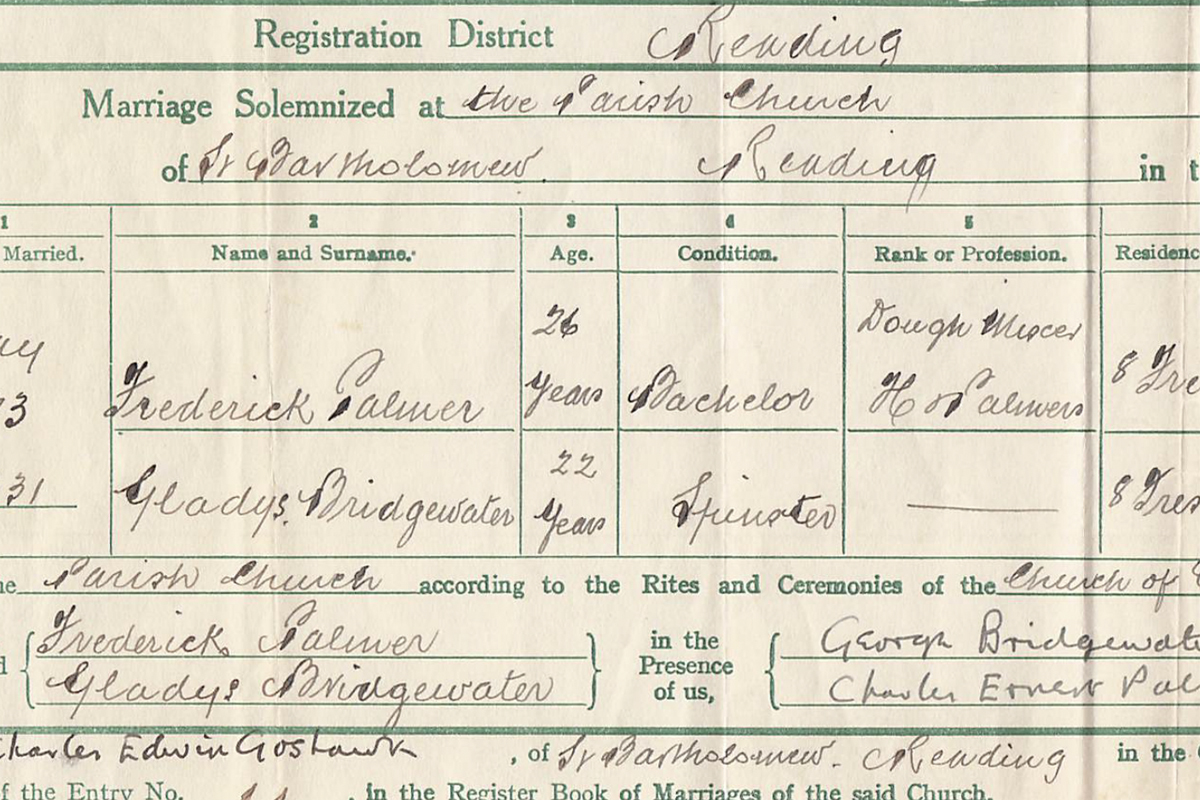 Registration District Reading
Marriage Solemnized at the Parish Church
of St Bartholomew. Reading in t
1 2 3 4 5
Married. Name and Surname. Age. Condition. Rank or Profession. Residenc
26 Dough Mixer
3 Frederick Palmer Years Bachelor H & Palmers 8 Tre
22
31 Gladys Bridgewater Years Spinster 8 Tres
he Parish Church according to the Rites and Ceremonies of the Church of
d Frederick Palmer in the George Bridgewate
Presence
Gladys Bridgewater of us, Charles Ernest Pal
Charles Edwin Goshawk, of St Bartholomew. Reading in the
f the Entry No. , in the Register Book of Marriages of the said Church.